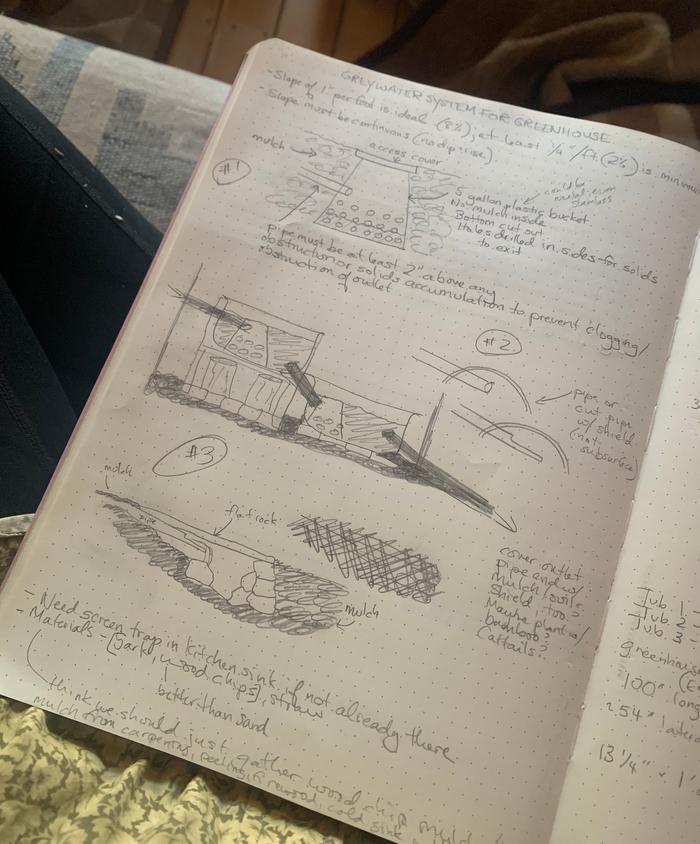 GREYWATER SYSTEM FOR GREENHOUSE
- Slope of 1" per foot is ideal (8%), at least 1/4"/ft (2%) is
- Slope must be continuous (no dip rise)
#1
mulch
access cover
could be
5 gallon plastic bucket
No mulch inside
Bottom cut out
Holes drilled in sides for solids
to exit
Pipe must be at least 2" above any
obstruction or solids accumulation to prevent clogging/
obstruction of outlet
#2
pipe or
cut pipe
w/ shield
(not
subsurface)
#3
mulch
pipe
flat rock
mulch
cover outlet
pipe end w/
mulch/soil
shield, too?
Maybe plant w/
bamboo?
Cattails?
- Need screen trap in kitchen sink if not already there
- Materials - [bark, wood chips], straw
better than sand
think we should just gather wood chip
mulch from carpentry, peeling, firewood, cold sink
Jub. 1
Jub. 2
Jub. 3
greenhouse
100" long
254"
13 1/4" x 1"